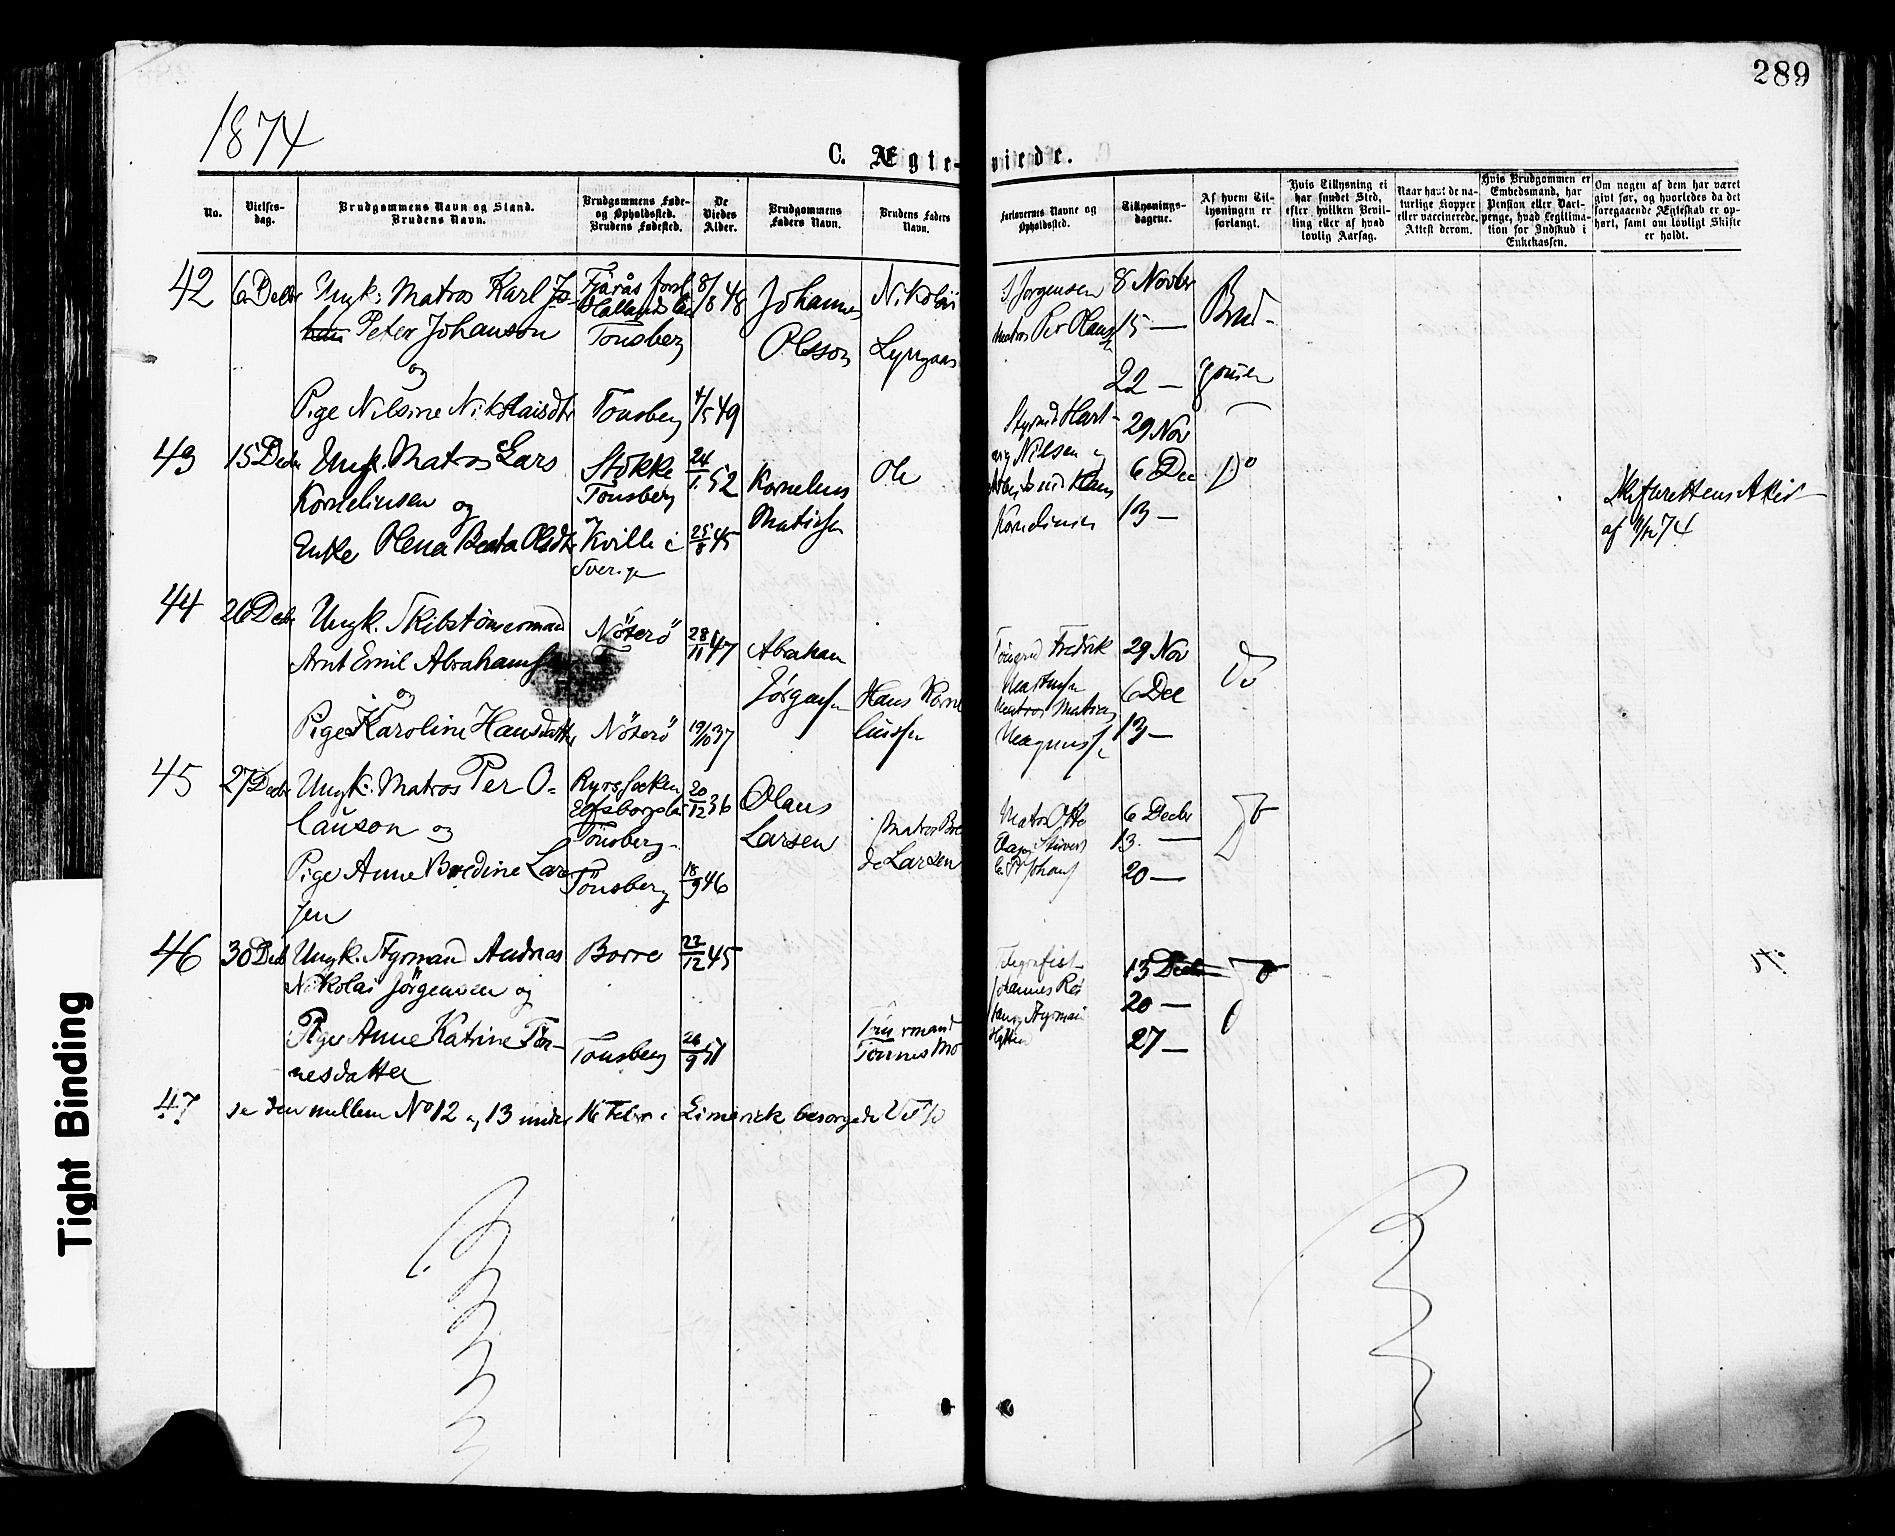 289
1874
C. Ægte-
viede.
No.
Vielses-
dag.
Brudgommens Navn og Stand.
Brudens Navn.
Brudgommens Føde-
og Opholdssted.
Brudens Fødested.
De
Viedes
Alder.
Brudgommens
Faders Navn.
Brudens Faders
Navn.
Forlovernes Navne og
Opholdssted.
Tillysnings-
dagene.
Af hvem Til-
lysningen er
forlangt.
Hvis Tillysning ei
har fundet Sted,
efter hvilken Bevil-
ling eller af hvad
lovlig Aarsag.
Naar havt de na-
turlige Kopper
eller vaccinerede.
Attest derom.
Hvis Brudgommen er
Embedsmand, har
Pension eller Vart-
penge, hvad Legitima-
tion for Indskud i
Enkekassen.
Om nogen af dem har været
givt før, og hvorledes da det
foregaaende Ægteskab er op-
hørt, samt om lovligt Skifte
er holdt.
42
6 Decbr
Ungk. Matros Karl Jo-
Peter Johanson
og
Pige Nilsine Nikolaisdtr
Fjärås
Tönsberg
Tonsberg
8/8 48
4/5 49
Johannes
Olsson
Nikolai
Lyngaas
Jørgensen
Matros Per Olaus
8 Novbr
15 —
22 —
Brud-
gommen
43
15 Decbr
Ungk. Matros Lars
Korneliusen og
Enke Olena Beata Olsdtr
Stokke
Tonsberg
Kville i
Sverige
24/1 52
25/8 45
Kornelius
Matisen
Ole
Styrmd Hart-
vig Nilsen og
Korneliusen
29 Nov
6 Dec
13 —
Do
Skifterettens Attest
af 74
44
26 Decbr
Ungk. Skibstömermand
Arnt Emil Abrahamsen
og
Pige Karoline Hansdatter
Nöterö
Nöterö
28/11 47
19/10 37
Abraham
Jörgensen
Hans Korne
liussen
Tömmermd Fredrik
Martinsen
Matros Matias
Magnussen
29 Nov
6 Dec
13 —
Do
45
27 Decbr
Ungk. Matros Per O-
lauson og
Pige Anne Bredine Lar
sen
Elfsborgslän
Tönsberg
Tönsberg
20/12 36
18/9 46
Olaus
Larsen
Matros Bre
de Larsen
Matros Otto
6 Decbr
13. —
20 —
Do
46
30 Decb
Ungk. Styrmand Andreas
Nikolai Jörgensen og
Pige Anne Katrine Tön-
nesdatter
Borre
Tonsberg
22/12 45
26/9 51
Tönnes Mo
Telegrafist
Johannes
Styrman
13 Decbr
20 —
27 —
Do
47
se den mellem No 12 og 13 under 16 Febr i Limerick besorgede Vielse
Tight Binding